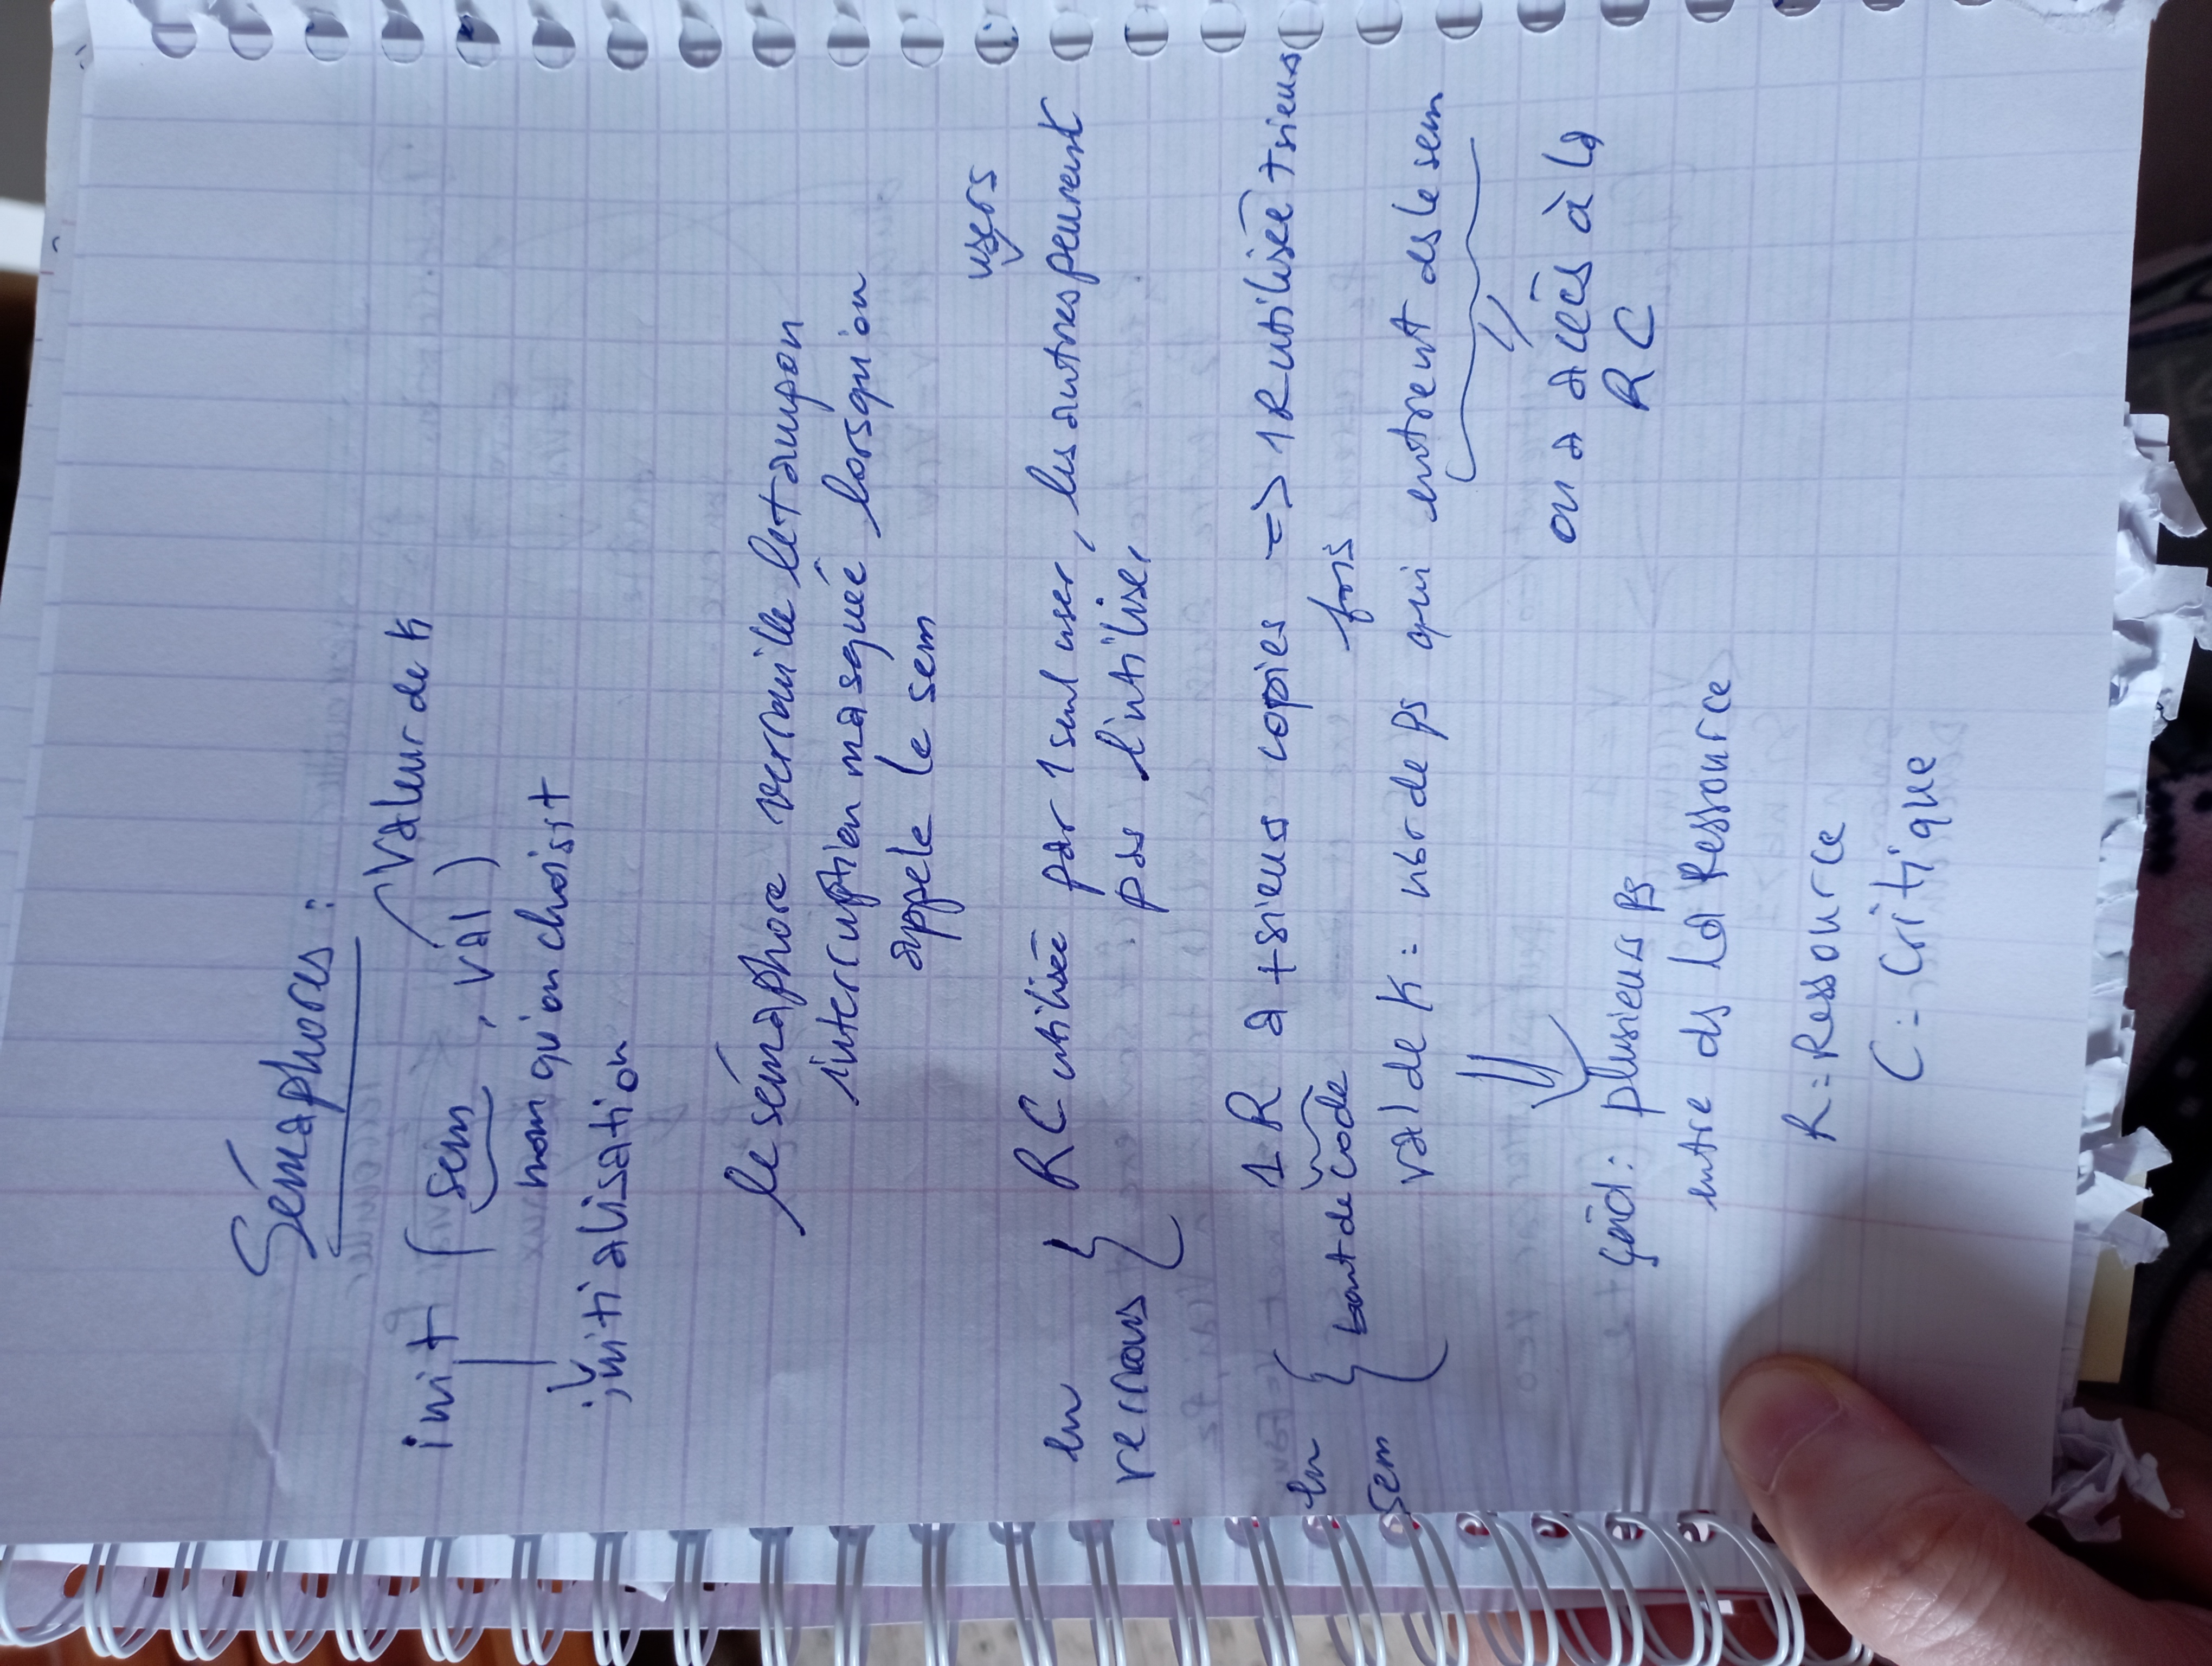 Sémaphores :
Valeur de K
init (sem, val)
nom qu'on choisit
initialisation
le sémaphore verrouille le tampon
interruption masquée lorsqu'on
appele le sem
users
en verrous { RC utilisée par 1 seul user, les autres peuvent
pas l'utiliser
en sem { 1 R a +sieurs copies => 1 R utilisée +sieurs
bout de code fois
val de K : nbr de ps qui entrent ds le sem
on a accès à la
RC
çàd : plusieurs ps
entre ds la Ressource
R = Ressource
C = Critique